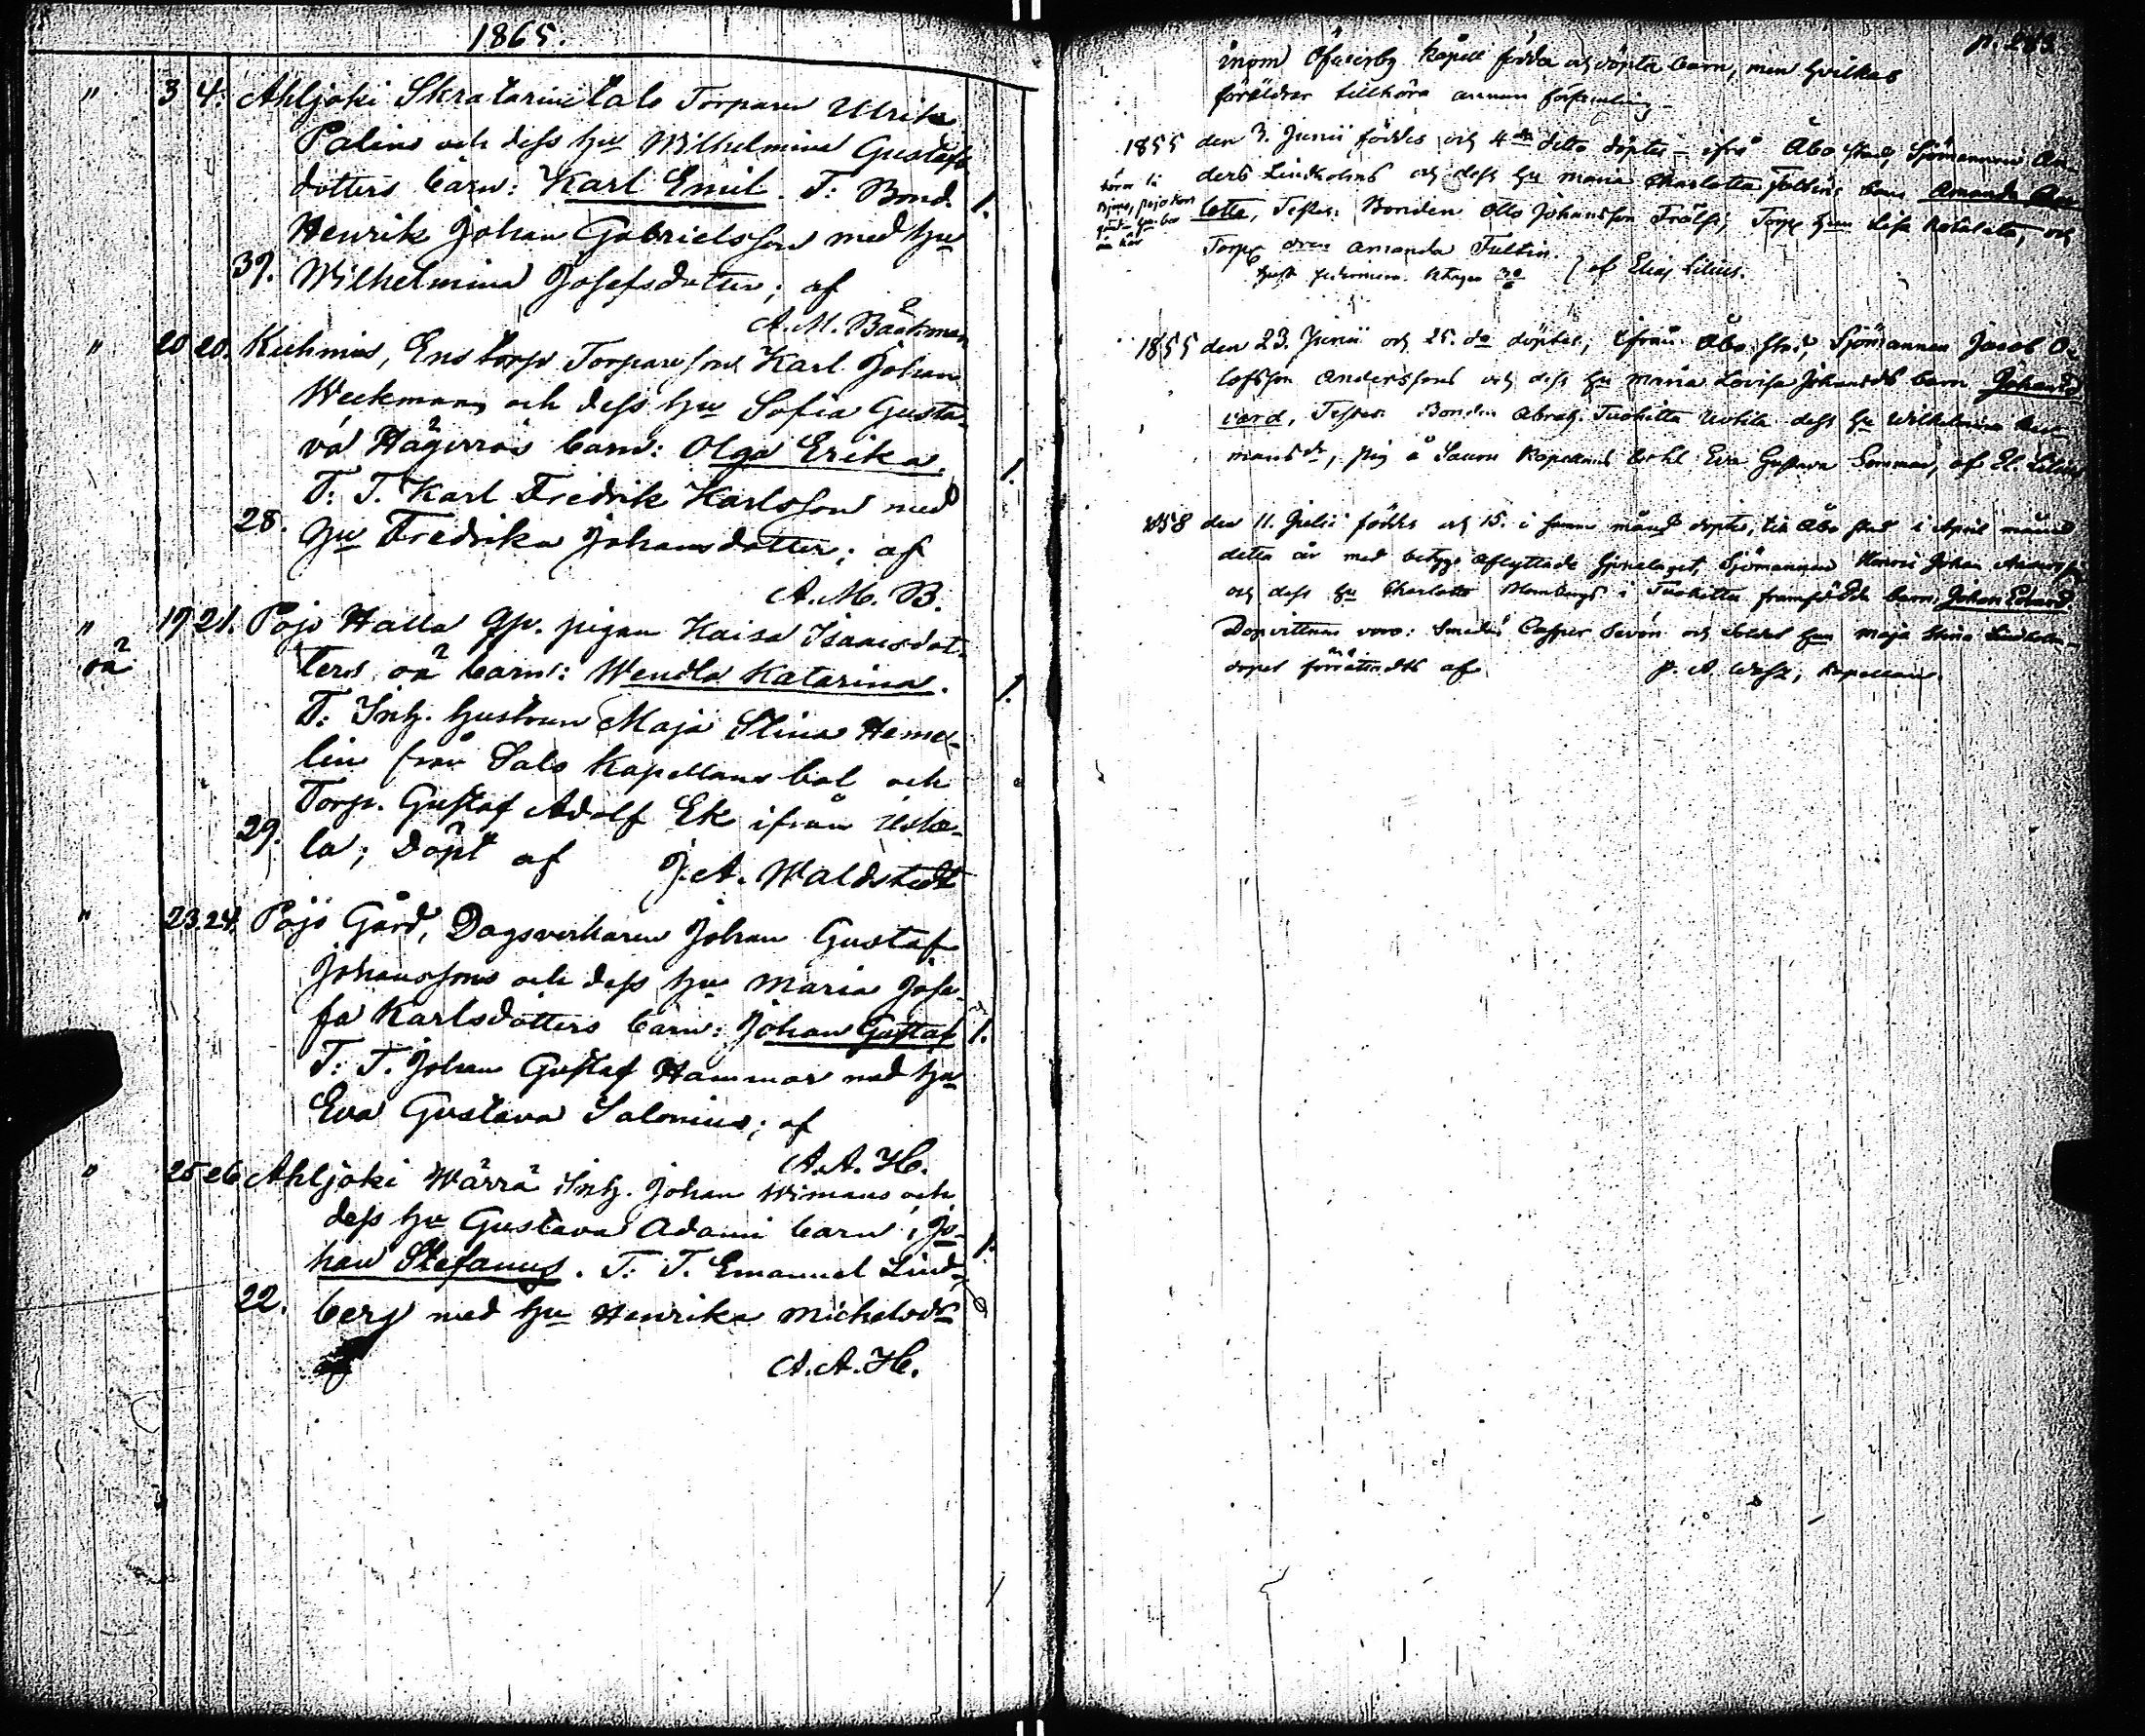 1865.
" 3 4. Ahljoki Skratarintalo Torparen Ulrik
Palins och dess hu Wilhelmina Gustafs
dotters barn: Karl Emil. T: Bond. 1.
Henrik Johan Gabrielsson med hu
39. Wilhelmina Josefsdotter; af
A. M. Bäckman
" 20 20. Kuhmis, Ens torp Torpareson Karl Johan
Weckmans och dess hu Sofia Gusta-
va Hägerros barn: Olga Erika. 1.
T: T. Karl Fredrik Karlsson med
28. hu Fredrika Johansdotter; af
A. M. B.
" 19 21. Pojo Halla gp. pigan Kaisa Isaacsdot-
oä ters oä barn: Wendla Katarina. 1.
T: Inh. hustrun Maja Stina Heme-
lin från Salo Kapellans bol och
Torp. Gustaf Adolf Ek ifrån
29. la; Döpt af J. A. Waldstedt
" 23. 24. Pojo Gård, Dagsverkaren Johan Gustaf
Johanssons och dess hu Maria Jose-
fa Karlsdotters barn: Johan Gustaf 1.
T: T. Johan Gustaf Hammar med hu
Eva Gustava Salonius; af
A. A. H.
" 25 26 Ahljoki Wärrä Inh. Johan Wimans och
dess hu Gustava Adami barn; Jo- 1.
han Stefanus. T: T. Emanuel Lind-
22. berg med hu Henrika Michelsdr
af A. A. H.
p. 283.
inom Kapell födda och döpta barn, men hvilkas
föräldrar tillhöra annan församling.
1855 den 3. Junii föddes och 4de detto döptes ifrå Åbo stad, Sjömannen An-
ders Lindholms och dess hu Maria Charlotta barn Amanda
lotta, Testes: Bonden Otto Johansson Torp hun Lisa och
Torp Amanda Faltin.
af Elias Lilius.
1855 den 23. Junii och 25. do döptes, ifrån Åbo stad, Sjömannen Jacob O-
lofsson Anderssons och dess hu Maria Lovisa Johansdr barn Johan Ed-
vard, Testes: Bonden Abrah. Tuohitta dess hu Wilhelmina
mansdr, pig. å Sauvo Kapellans bohl Eva Gustava Sommar, af El. Lilius
1858 den 11. Julii föddes och 15. i samma månad döptes, till Åbo stad i April månad
detta år med betyg aflyttade Sjömannen Johan
och dess hu Charlotta i Tuohitta framfödda barn Johan Edvard.
Dopvittnen voro: Smeden Casper Sevón och hun Maja Stina
dopet förrättades af Kapellan.